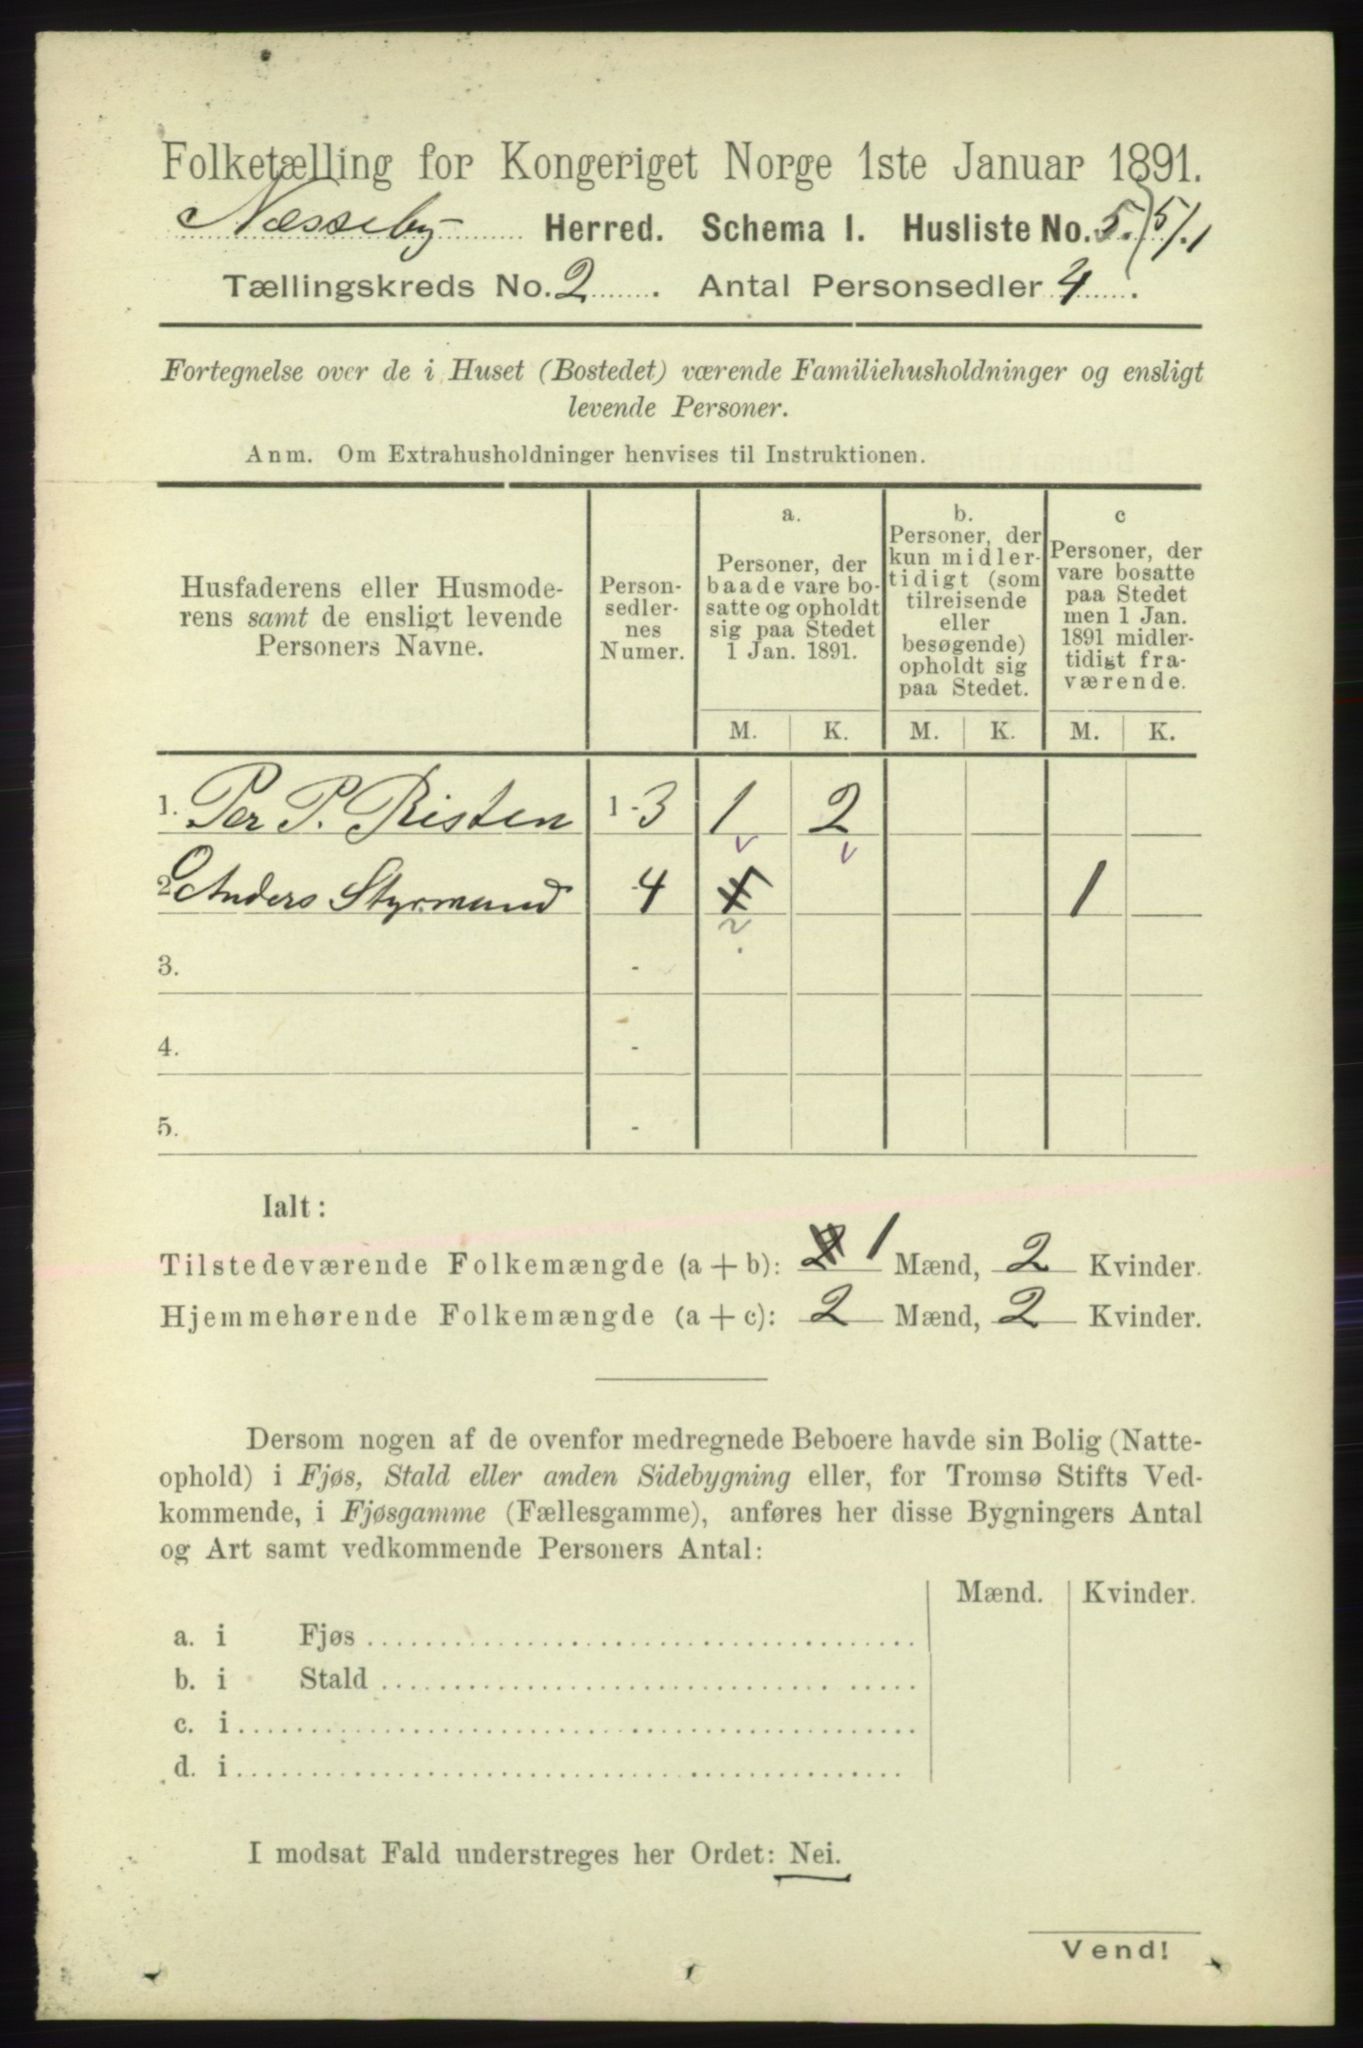 Folketælling for Kongeriget Norge 1ste Januar 1891.
Næsseby Herred. Schema I. Husliste No. 5. 5/1
Tællingskreds No. 2. Antal Personsedler 4.
Fortegnelse over de i Huset (Bostedet) værende Familiehusholdninger og ensligt
levende Personer.
Anm. Om Extrahusholdninger henvises til Instruktionen.
Husfaderens eller Husmode-
rens samt de ensligt levende
Personers Navne.
Person-
sedler-
nes
Numer.
a.
Personer, der
baade vare bo-
satte og opholdt
sig paa Stedet
1 Jan. 1891.
b.
Personer, der
kun midler-
tidigt (som
tilreisende
eller
besøgende)
opholdt sig
paa Stedet.
c
Personer, der
vare bosatte
paa Stedet
men 1 Jan.
1891 midler-
tidigt fra-
værende.
M. K. M. K. M. K.
1. Per P. Risten 1-3 1 2
2. Anders Styrmand -4 1
3. -
4. -
5. -
Ialt:
Tilstedeværende Folkemængde (a + b): 2 1 Mænd, 2 Kvinder.
Hjemmehørende Folkemængde (a + c): 2 Mænd, 2 Kvinder.
Dersom nogen af de ovenfor medregnede Beboere havde sin Bolig (Natte-
ophold) i Fjøs, Stald eller anden Sidebygning eller, for Tromsø Stifts Ved-
kommende, i Fjøsgamme (Fællesgamme), anføres her disse Bygningers Antal
og Art samt vedkommende Personers Antal:
Mænd. Kvinder.
a. i Fjøs
b. i Stald
c. i
d. i
I modsat Fald understreges her Ordet: Nei.
Vend!